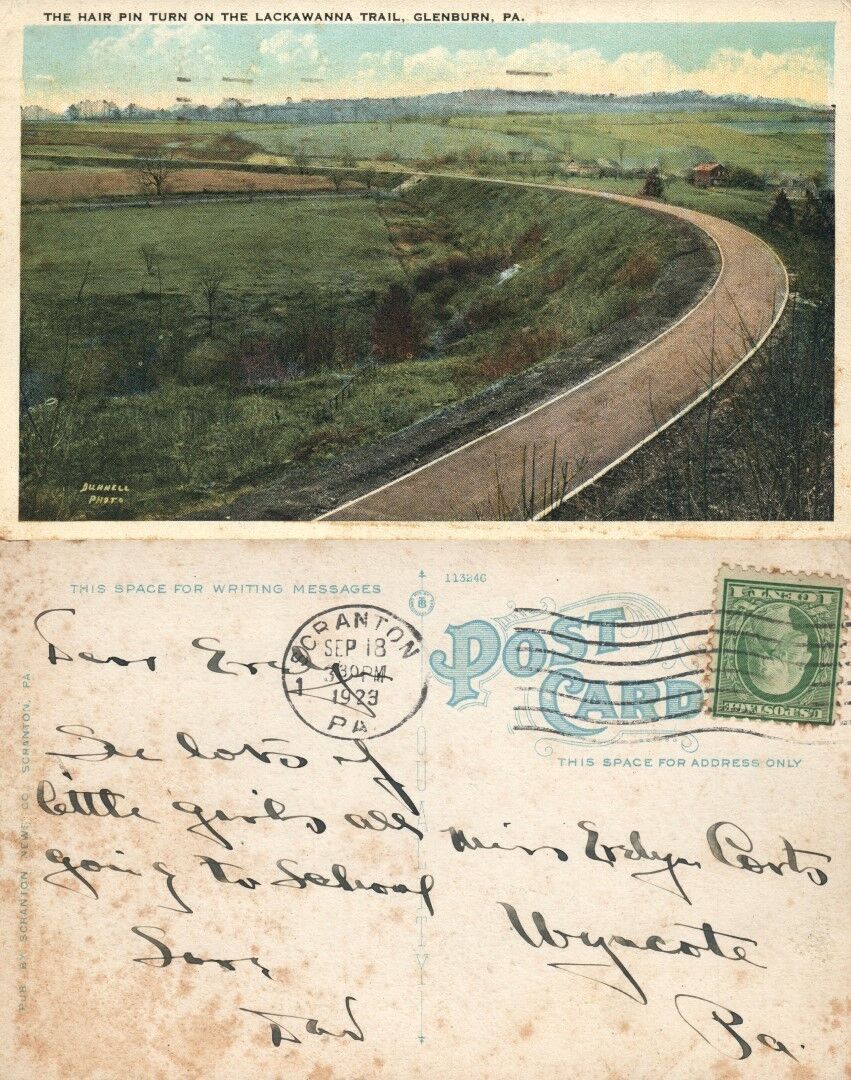 THE HAIR PIN TURN ON THE LACKAWANNA TRAIL, GLENBURN, PA.
BUNNELL
PHOTO
THIS SPACE FOR WRITING MESSAGES
113246
POST
CARD
THIS SPACE FOR ADDRESS ONLY
SCRANTON
SEP 18
330PM
1923
1
PA
1 CENT 1
U.S. POSTAGE
PUB. BY SCRANTON NEWS CO., SCRANTON, PA
QUALITY
Dear Evelyn
See lots of
little girls all
going to School
Love
Dad
Miss Evelyn Corts
Wyncote
Pa.